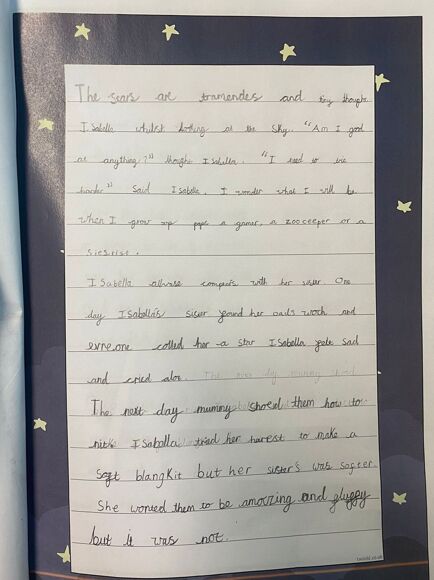 The stars are tramendes and tiny thought
ISabella whilst looking at the sky. "Am I good
at anything?" thought ISabella. "I need to trie
harder" Said ISabella. I wonder what I will be
when I grow up pape a gamer, a zooceeper or a
ISabella allwase compairs with her sister. One
day ISabella's sister found her dad's woch and
evreone called her a star ISabella felt sad
and cried alot. The next day mummy shoed
The next day mummy shoed them how to
nitt ISabella tried her harest to make a
soft blangkit but her sister's was softer
She wonted them to be amoozing and fluffy
but it was not.
twinkl.co.uk